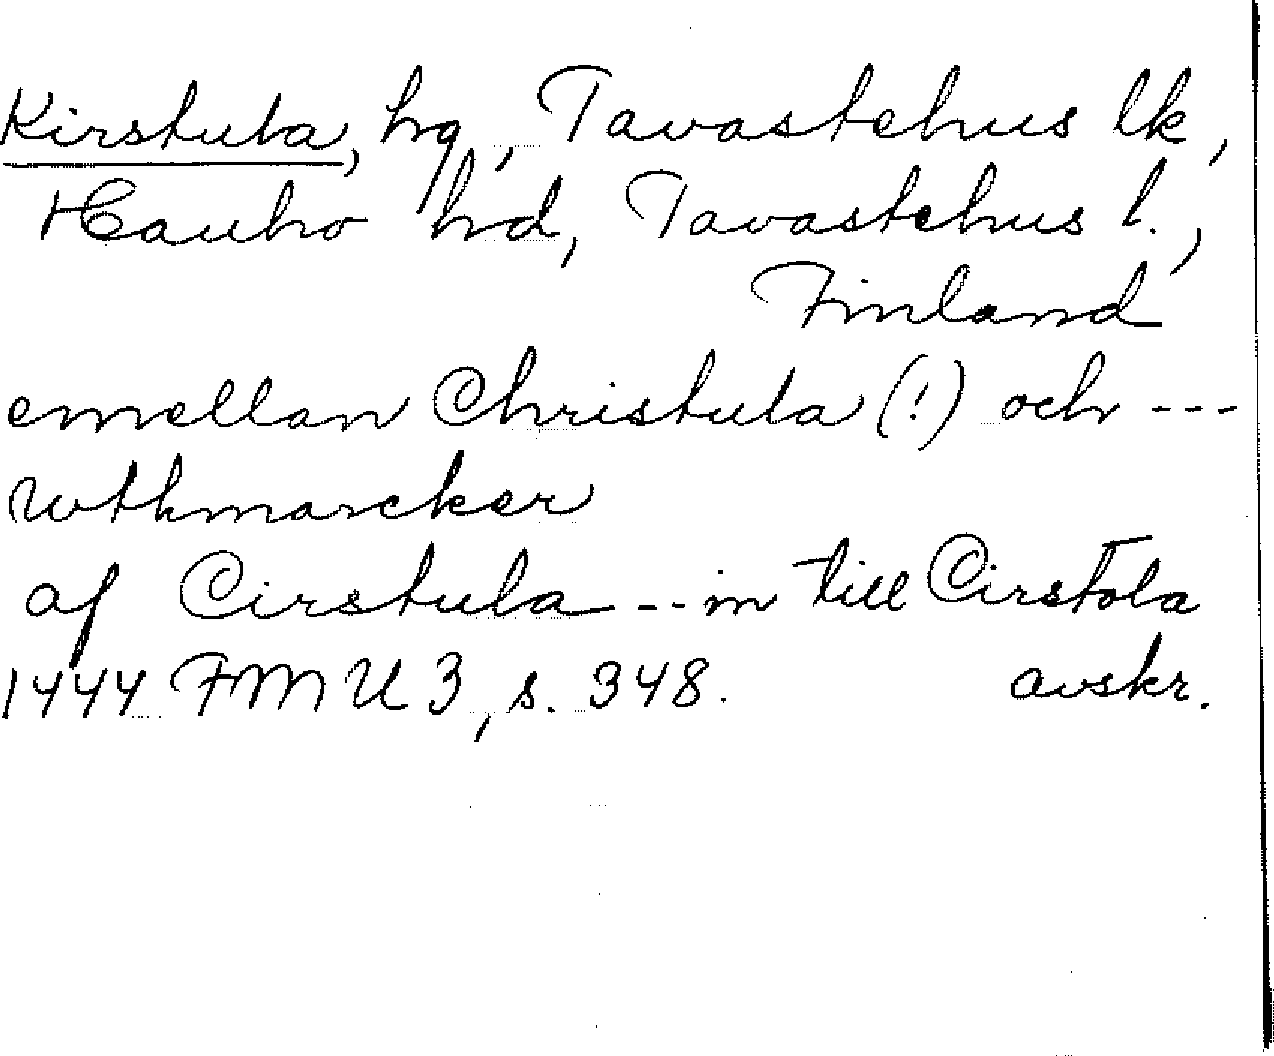 Kirstula, hg, Tavastehus lk,
Hauho hd, Tavastehus l.,
Finland
emellan Christula (!) och ---
wthmarcker
af Cirstula --- in till Cirstola
1444 FMU 3, s. 348. avskr.